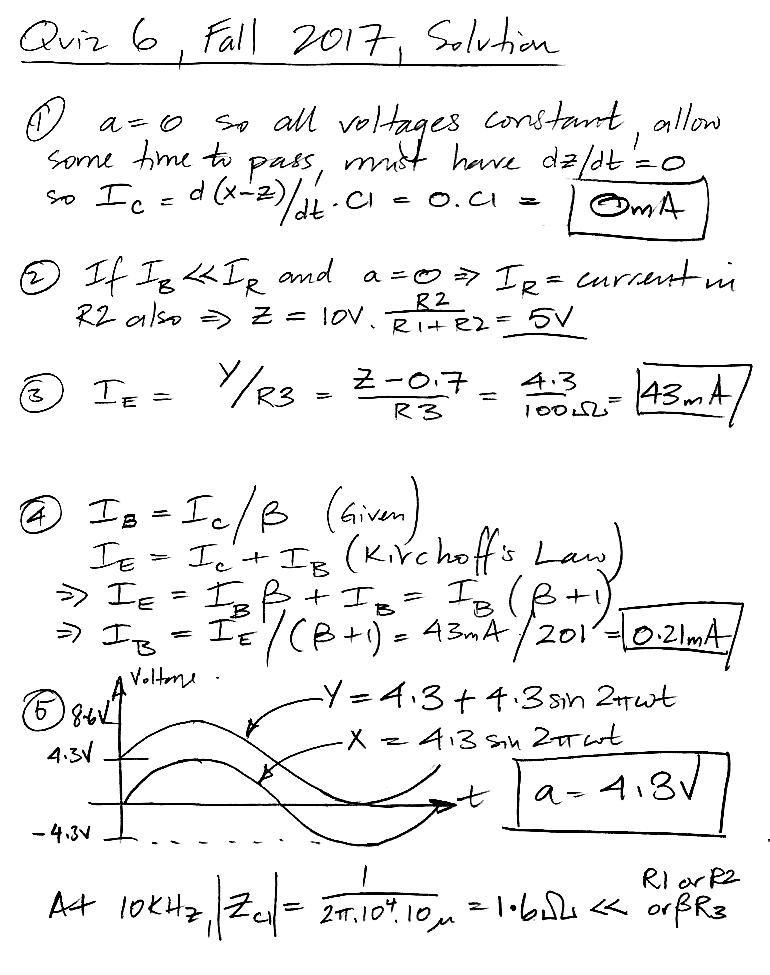 Quiz 6, Fall 2017, Solution
① a=0 so all voltages constant, allow
some time to pass, must have dz/dt = 0
so I_C = d(x-z)/dt . C1 = 0.C1 = 0mA
② If I_B << I_R and a=0 ⇒ I_R = current in
R2 also ⇒ Z = 10V. R2/(R1+R2) = 5V
③ I_E = Y/R3 = (Z-0.7)/R3 = 4.3/100Ω = 43mA
④ I_B = I_C/β (Given)
I_E = I_C + I_B (Kirchoff's Law)
⇒ I_E = I_B β + I_B = I_B (β+1)
⇒ I_B = I_E/(β+1) = 43mA/201 = 0.21mA
⑤ Voltage
8.6V
Y = 4.3 + 4.3 sin 2πωt
X = 4.3 sin 2πωt
4.3V
t
a = 4.3V
-4.3V
At 10KHz, |Z_C1| = 1/(2π.10⁴.10μ) = 1.6Ω << R1 or R2
or βR3